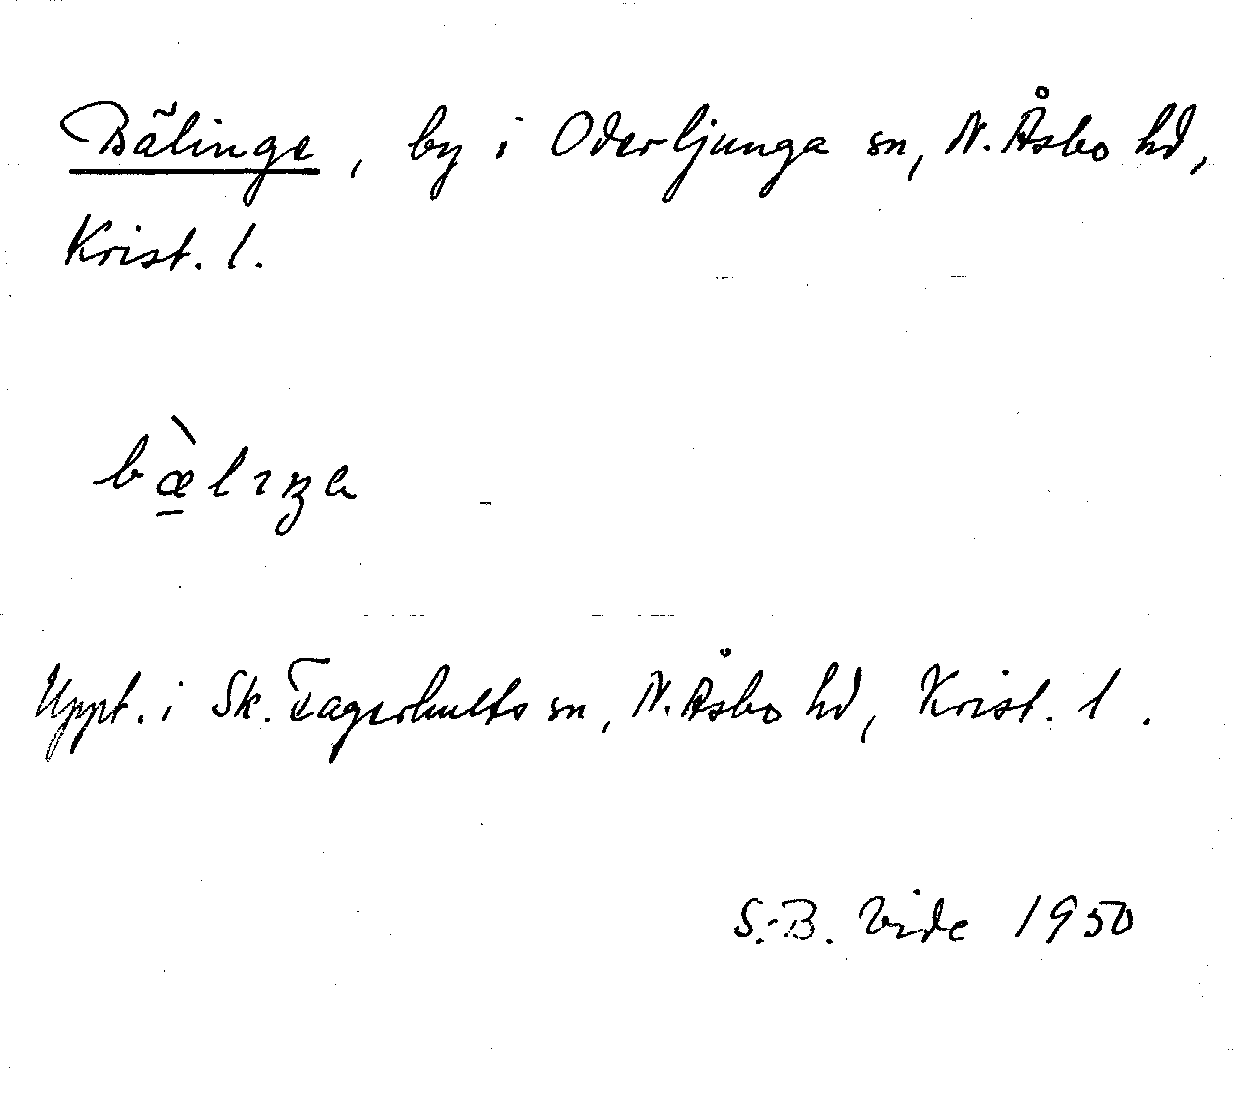 Bälinge, by i Oderljunga sn, N. Åsbo hd,
Krist. l.
bæ̱̀lıŋa
Uppt. i Sk. Fagerhults sn, N. Åsbo hd, Krist. l.
S.-B. Vide 1950